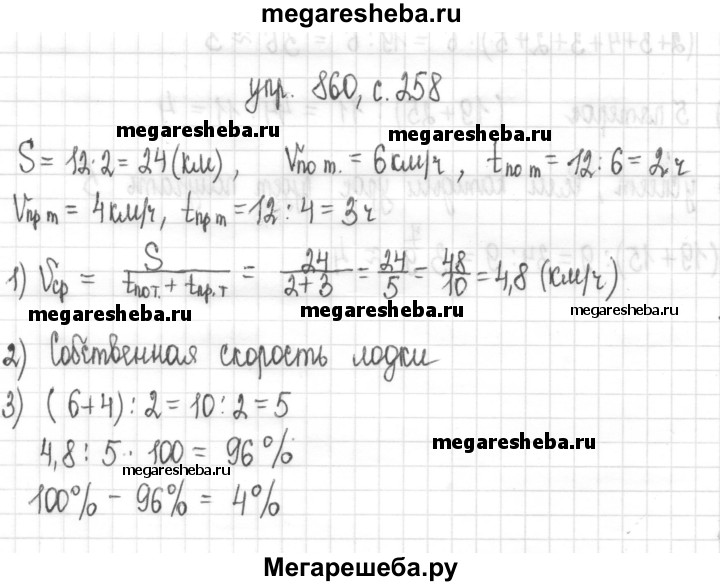 megaresheba.ru
упр. 860, с. 258
megaresheba.ru megaresheba.ru
S = 12·2 = 24 (км), Vпо т. = 6 км/ч, tпо т = 12 : 6 = 2 ч
Vпр т = 4 км/ч, tпр т = 12 : 4 = 3 ч
1) Vср = S / (tпо т. + tпр. т) = 24 / (2+3) = 24/5 = 48/10 = 4,8 (км/ч)
megaresheba.ru megaresheba.ru
2) Собственная скорость лодки
3) (6+4) : 2 = 10 : 2 = 5
4,8 : 5 · 100 = 96 %
megaresheba.ru megaresheba.ru
100% – 96% = 4%
Мегарешеба.ру